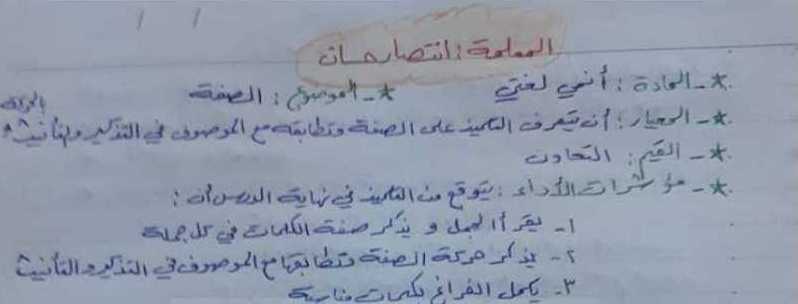 المعلمة : انتصار حسان
*- المادة : أنمي لغتي *- الموضوع : الصفة
*- المعيار : أن يتعرف التلميذ على الصفة وتطابقه مع الموصوف في التذكير والتأنيث و
*- القيم : التعاون
*- مؤشرات الأداء : يتوقع من التلميذ في نهاية الدرس أن :
١- يقرأ الجمل و يذكر صفة الكلمات في كل جملة
٢- يذكر حركة الصفة وتطابقها مع الموصوف في التذكير والتأنيث
٣- يكمل الفراغ بكلمات مناسبة